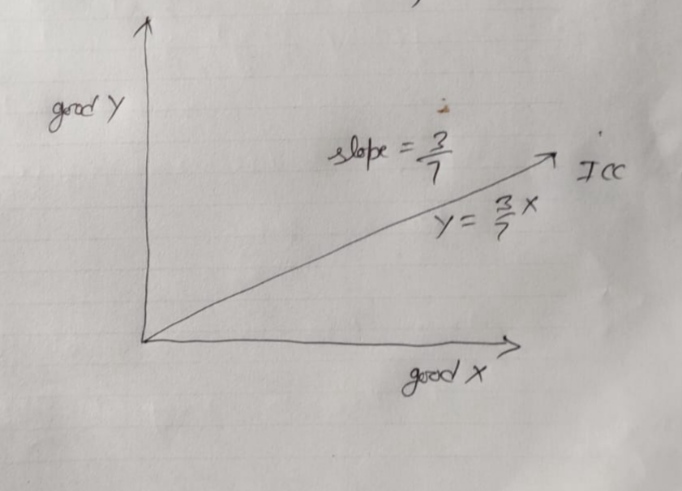 good Y
slope = 3/7
ICC
Y = 3/7 X
good X